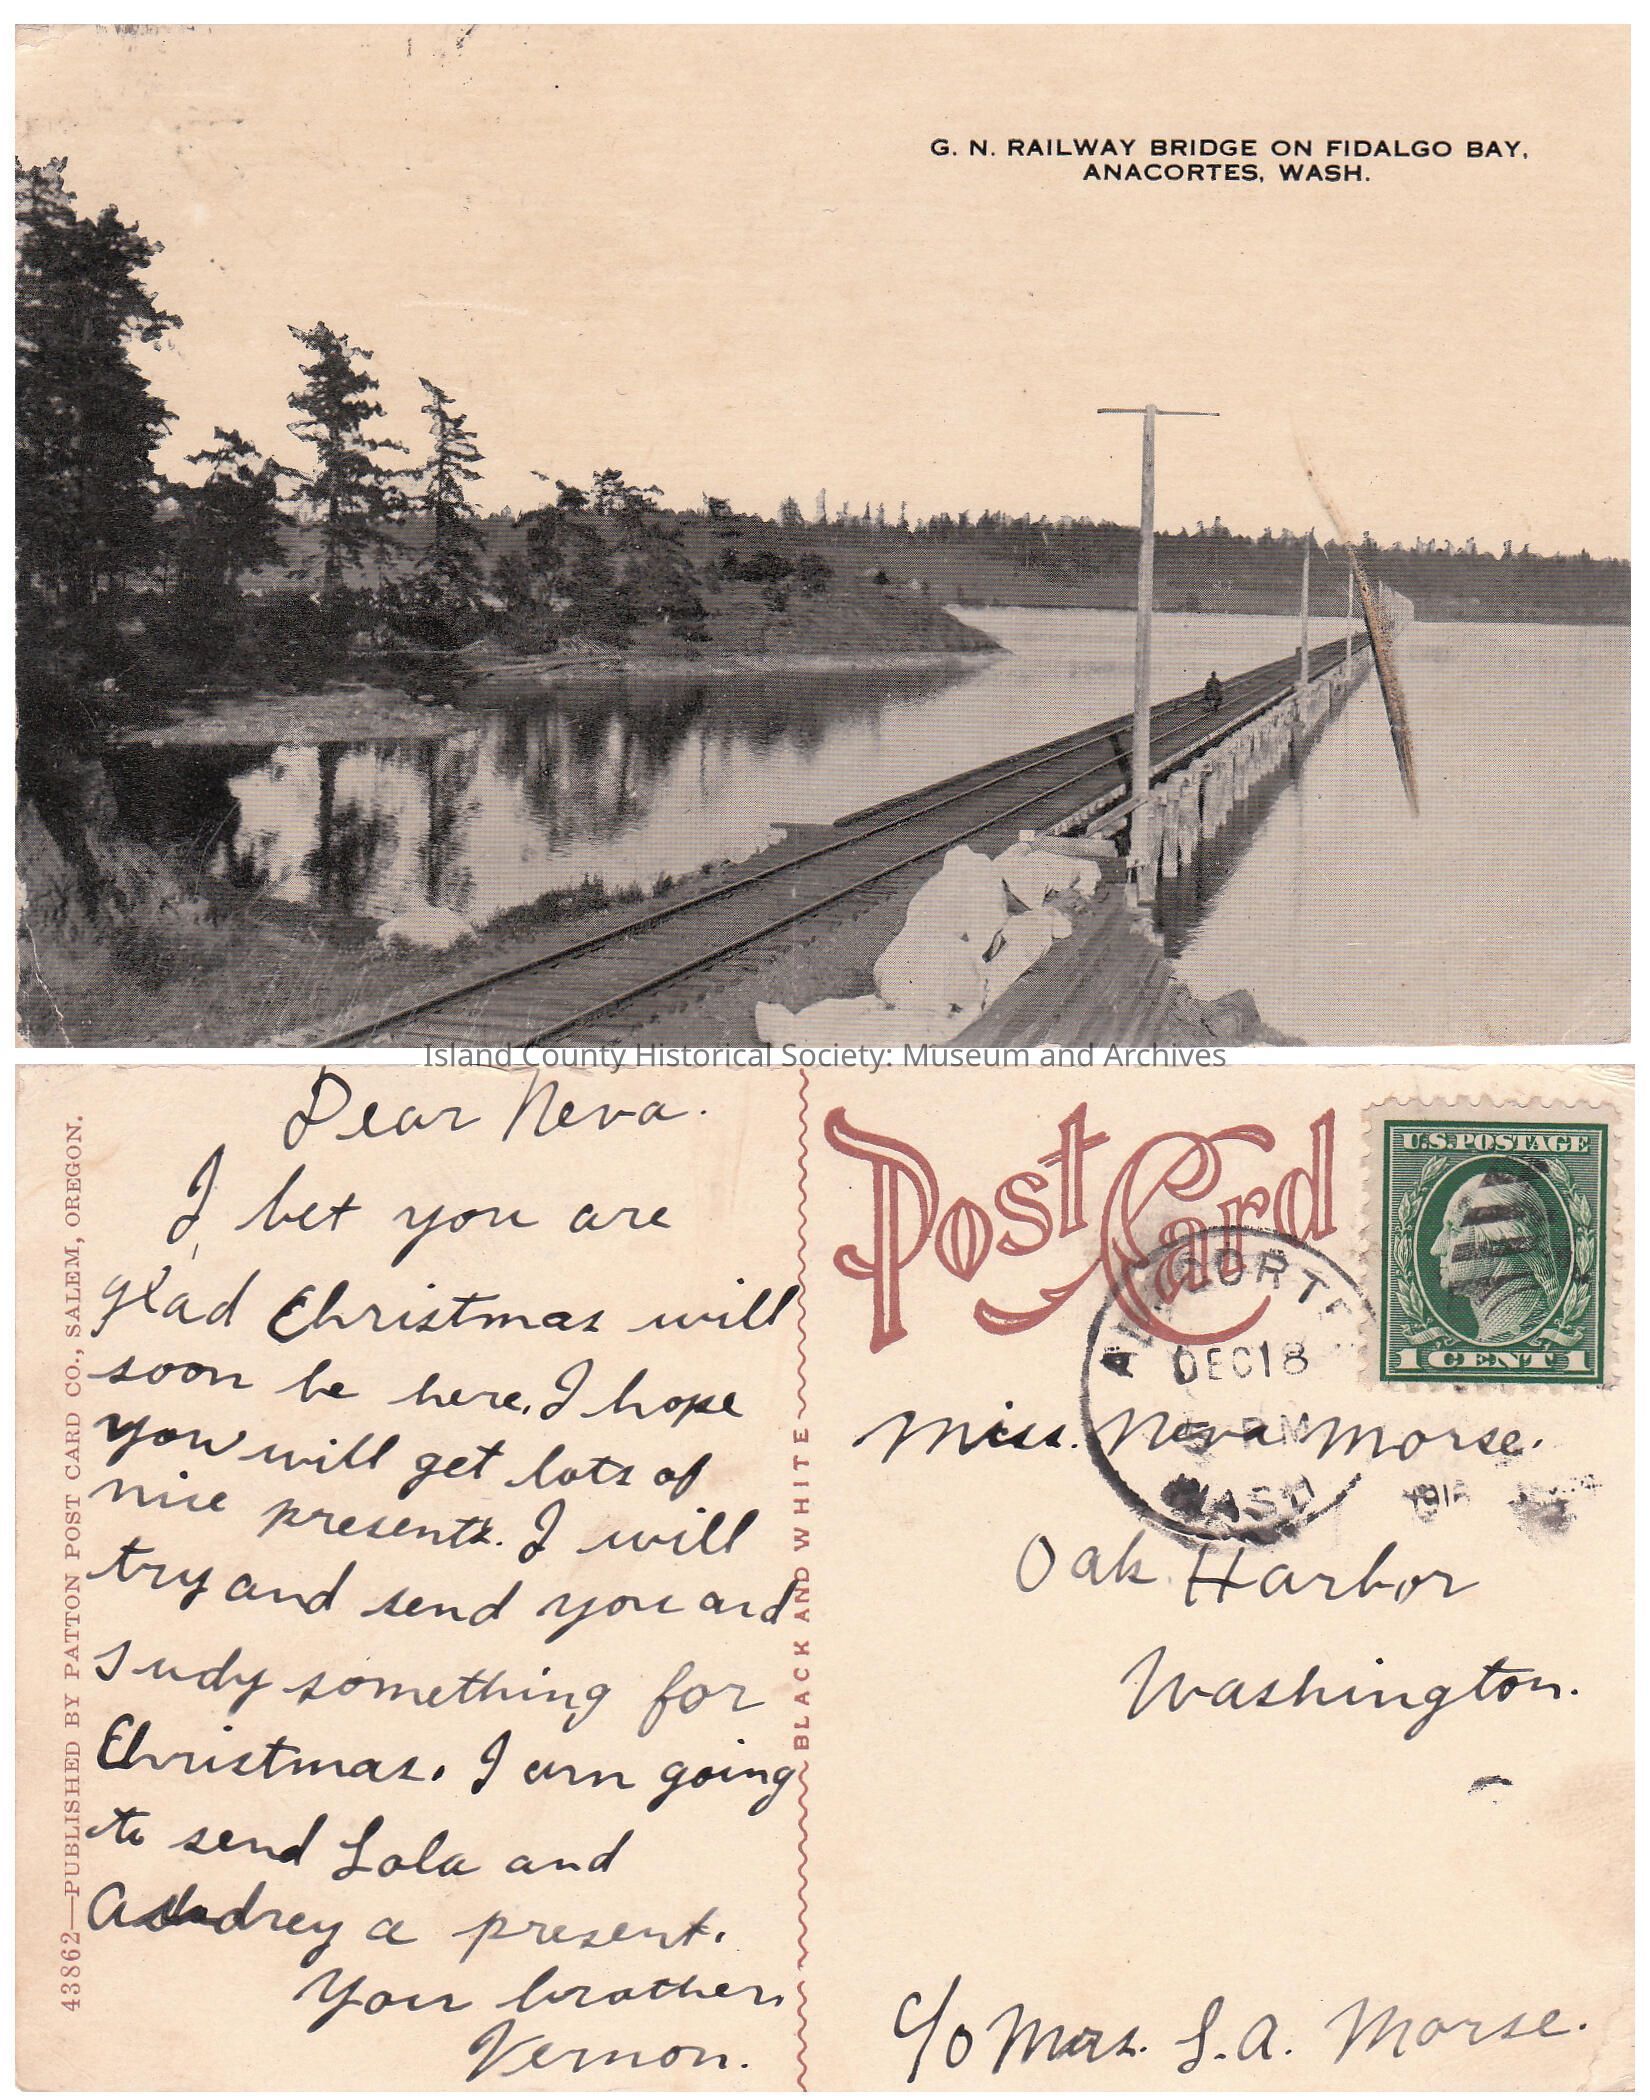 G. N. RAILWAY BRIDGE ON FIDALGO BAY,
ANACORTES, WASH.
Island County Historical Society: Museum and Archives
43862—PUBLISHED BY PATTON POST CARD CO., SALEM, OREGON.
Dear Neva.
I bet you are
glad Christmas will
soon be here. I hope
you will get lots of
nice presents. I will
try and send you and
Judy something for
Christmas. I am going
to send Lola and
Audrey a present.
Your brother,
Vernon.
BLACK AND WHITE
Post Card
U.S. POSTAGE
1 CENT 1
ANACORTES
DEC 18
PM
WASH
Miss. Neva Morse.
Oak Harbor
Washington.
c/o Mrs. L. A. Morse.